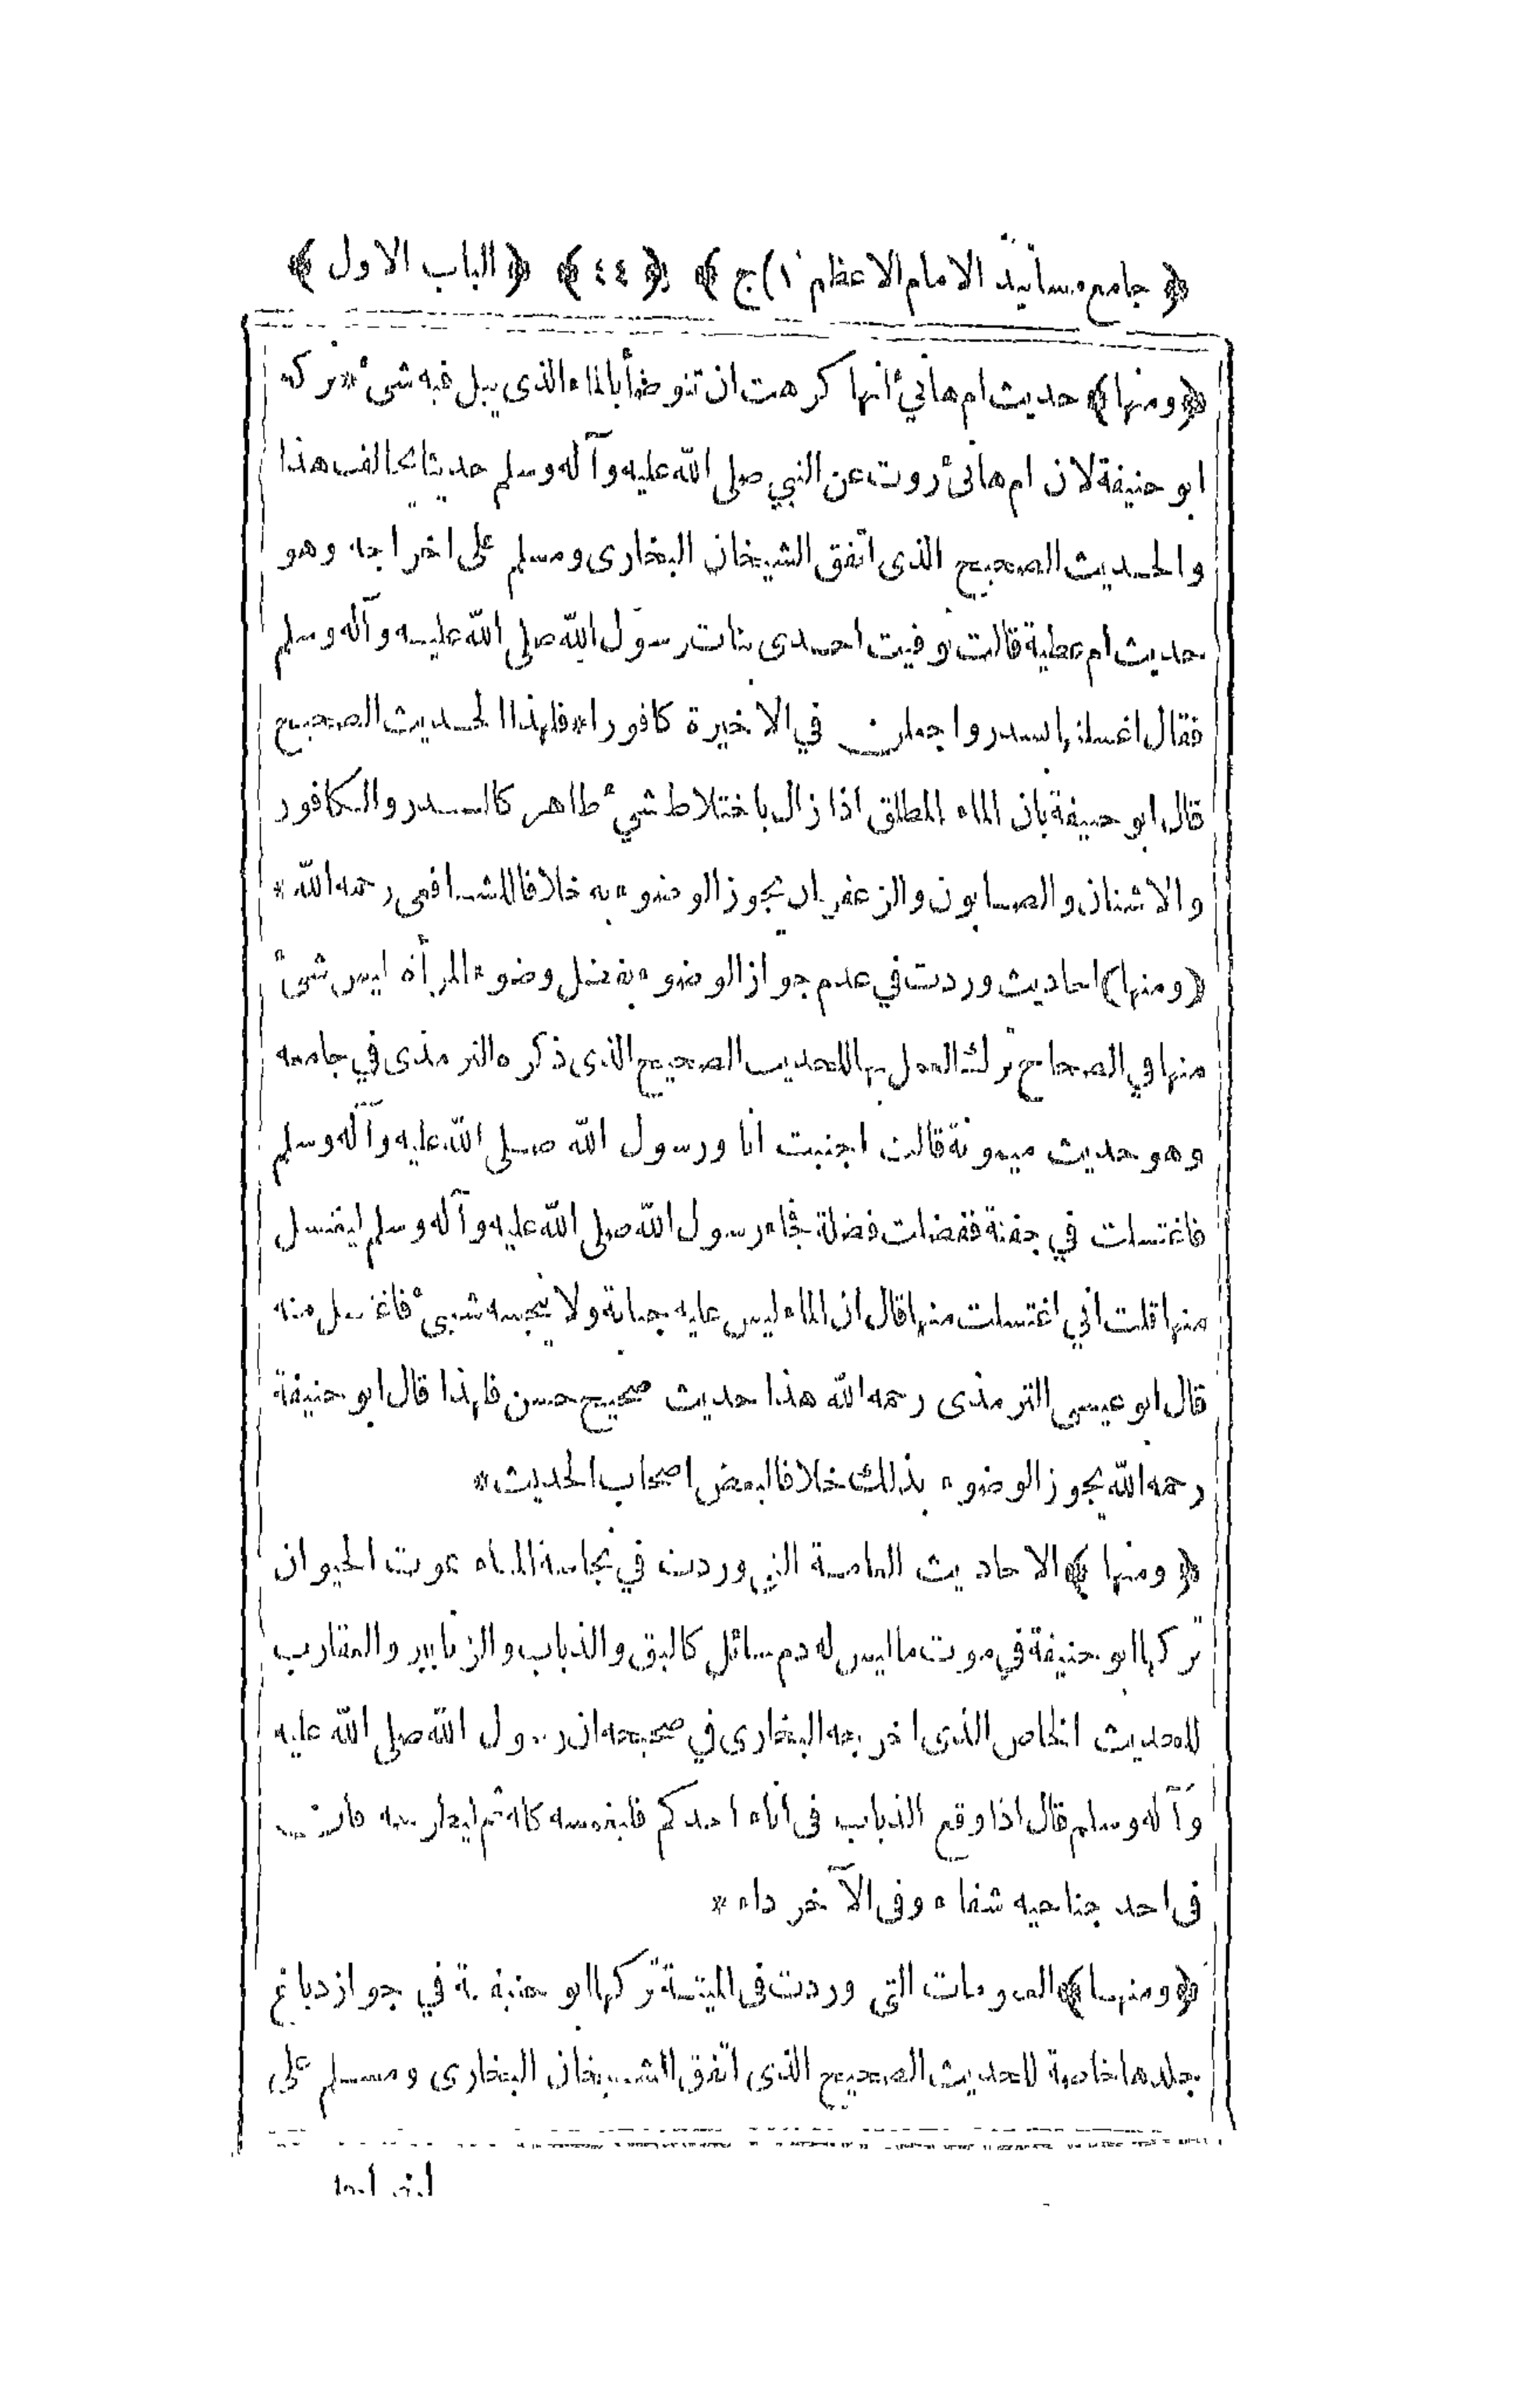 ﴿ جامع مسانيد الامام الاعظم ١) ج ﴾ ﴿ ٤٤ ﴾ ﴿ الباب الاول ﴾
﴿ ومنها ﴾ حديث ام هانئ انها كرهت ان تتوضأ بالماء الذى يبل فيه شئ * تركه
ابو حنيفة لان ام هانئ روت عن النبي صلى الله عليه وآله وسلم حديثا يخالف هذا
والحديث الصحيح الذى اتفق الشيخان البخارى ومسلم على اخراجه وهو
حديث ام عطية قالت توفيت احدى بنات رسول الله صلى الله عليه وآله وسلم
فقال اغسلنها بسدر واجعلن في الاخيرة كافورا * فلهذا الحديث الصحيح
قال ابو حنيفة بان الماء المطلق اذا زال باختلاط شئ طاهر كالسدر والكافور
والاشنان والصابون والزعفران يجوز الوضوء به خلافا للشافعى رحمه الله *
(ومنها) احاديث وردت في عدم جواز الوضوء بفضل وضوء المرأة ليس شئ
منها في الصحاح ترك العمل بها للحديث الصحيح الذى ذكره الترمذى في جامعه
وهو حديث ميمونة قالت اجنبت انا ورسول الله صلى الله عليه وآله وسلم
فاغتسلت في جفنة ففضلت فضلة فجاء رسول الله صلى الله عليه وآله وسلم ليغتسل
منها قلت انى اغتسلت منها قال ان الماء ليس عليه جنابة ولا ينجسه شيئ فاغتسل منه
قال ابو عيسى الترمذى رحمه الله هذا حديث صحيح حسن فلهذا قال ابو حنيفة
رحمه الله يجوز الوضوء بذلك خلافا لبعض اصحاب الحديث *
﴿ ومنها ﴾ الاحاديث العامة التي وردت في نجاسة الماء بموت الحيوان
تركها ابو حنيفة في موت ما ليس له دم سائل كالبق والذباب والزنابير والعقارب
للحديث الخاص الذى اخرجه البخارى في صحيحه ان رسول الله صلى الله عليه
وآله وسلم قال اذا وقع الذباب فى اناء احدكم فليغمسه كله ثم ليطرحه فان
فى احد جناحيه شفاء وفى الآخر داء *
﴿ ومنها ﴾ العمومات التي وردت فى الميتة تركها ابو حنيفة في جواز دباغ
جلدها خاصة للحديث الصحيح الذى اتفق الشيخان البخارى ومسلم على